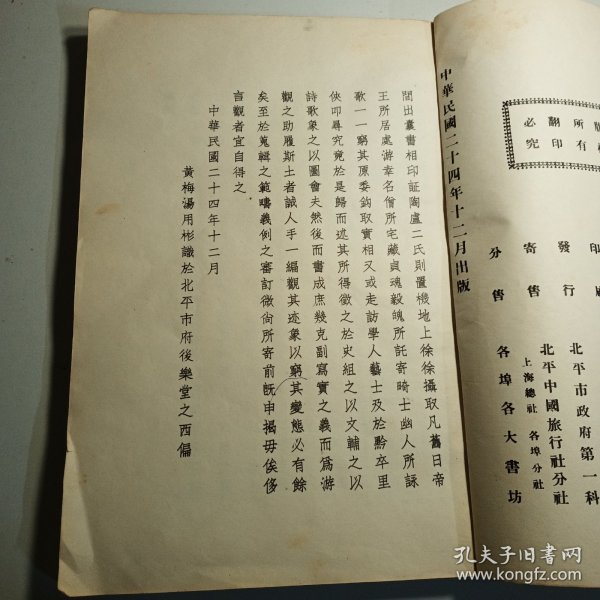 版
所有
翻印
必究
中華民國二十四年十二月出版
印
發行
北平市政府第一科
寄售
北平中國旅行社分社
上海總社 各埠分社
分售
各埠各大書坊
間出囊書相印証陶盧二氏則置機地上徐徐攝取凡舊日帝
王所居處游幸名僧所宅藏貞魂毅魄所託寄畸士幽人所詠
歌一一窮其原委鈎取實相又或走訪學人藝士及於黔卒里
俠叩尋究竟於是歸而述其所得徵之於史組之以文輔之以
詩歌象之以圖會夫然後而書成庶幾克副寫實之義而爲游
觀之助雁斯士者誠人手一編觀其迹象以窮其變態必有餘
矣至於蒐輯之範疇義例之審訂微尙所寄前旣申揭毋俟侈
言觀者宜自得之
中華民國二十四年十二月
黃梅湯用彬識於北平市府後樂堂之西偏
孔夫子旧书网
www.kongfz.com